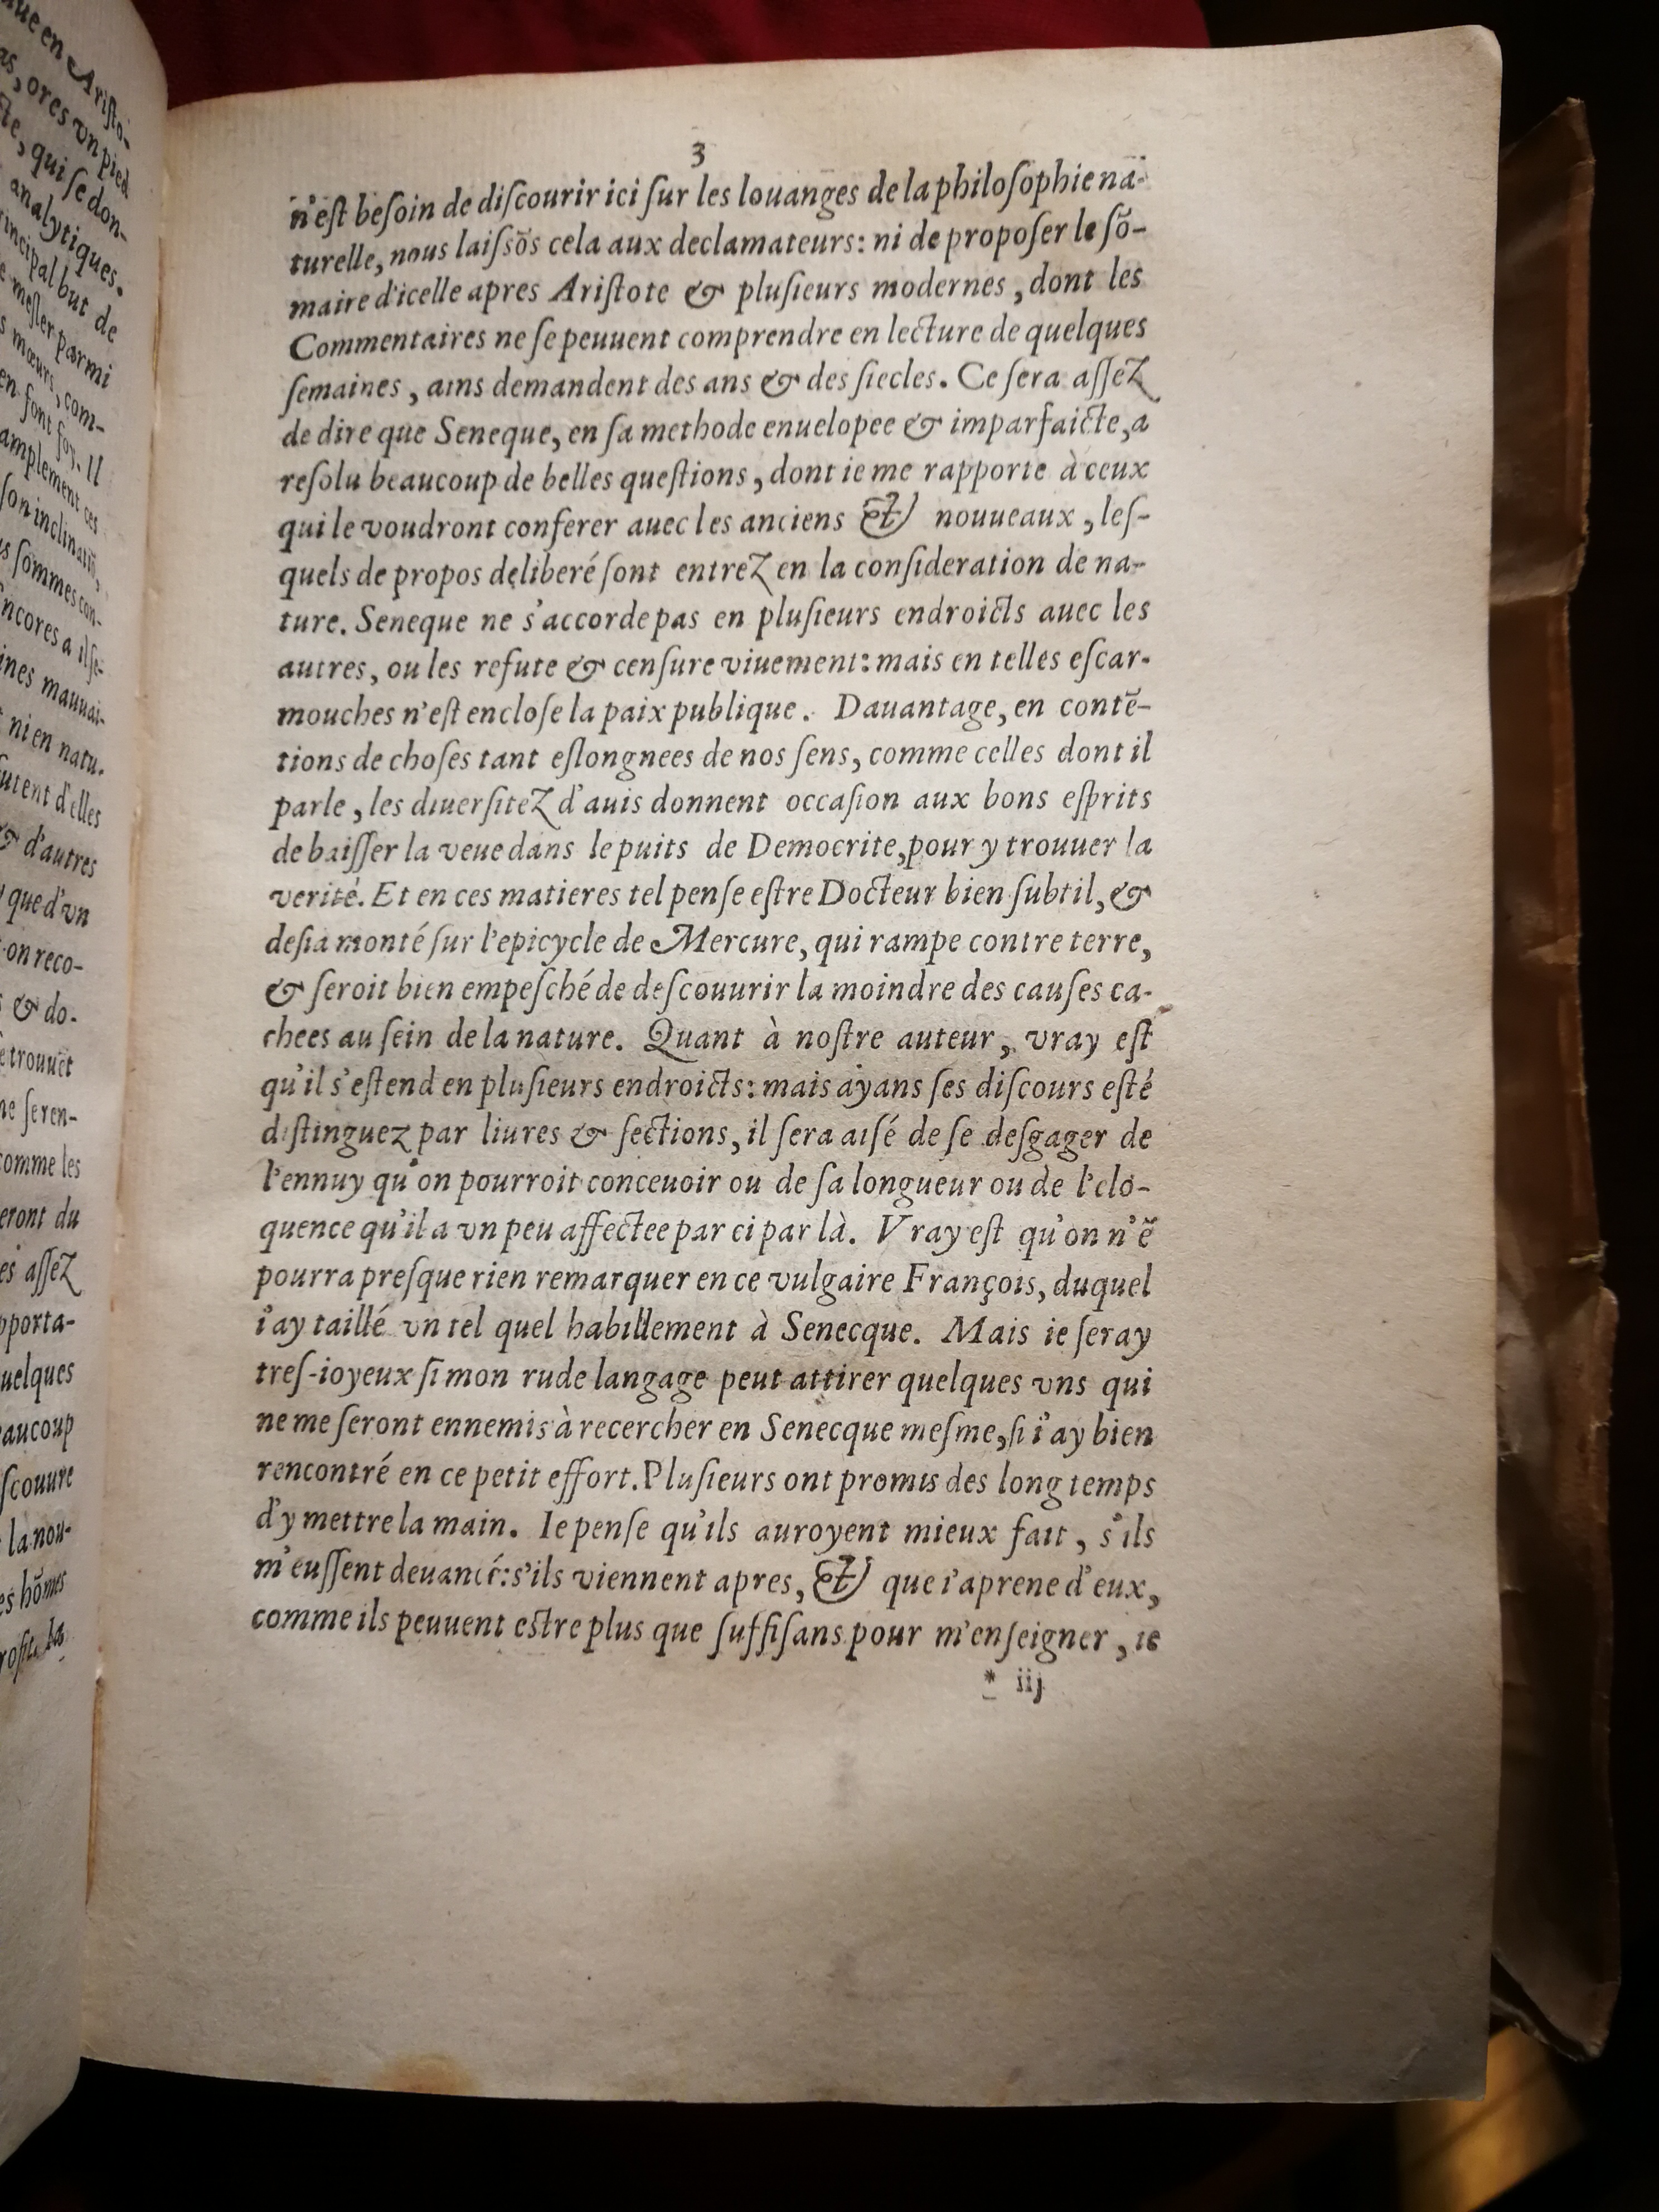 ue en Aristo-
as, ores vn pied
cte, qui ſe don-
analytiques.
rincipal but de
meſler parmi
s mœurs, com-
en font foy. Il
amplement ces
ſon inclinatiō,
s ſommes con-
ncores a il ſe-
ines mauuai-
ni en natu-
utent d'elles
& d'autres
que d'vn
on reco-
& do-
trouuēt
ne ſe ren-
comme les
eront du
es aſſeZ
pporta-
uelques
eaucoup
ſcouure
la nou-
es hōmes
3
n'eſt beſoin de diſcourir ici ſur les louanges de la philoſophie na-
turelle, nous laiſsōs cela aux declamateurs: ni de propoſer le ſō-
maire d'icelle apres Ariſtote & pluſieurs modernes, dont les
Commentaires ne ſe peuuent comprendre en lecture de quelques
ſemaines, ains demandent des ans & des ſiecles. Ce ſera aſſeZ
de dire que Seneque, en ſa methode enuelopee & imparfaicte, a
reſolu beaucoup de belles queſtions, dont ie me rapporte à ceux
qui le voudront conferer auec les anciens & nouueaux, leſ-
quels de propos deliberé ſont entreZ en la conſideration de na-
ture. Seneque ne s'accorde pas en pluſieurs endroicts auec les
autres, ou les refute & cenſure viuement: mais en telles eſcar-
mouches n'eſt encloſe la paix publique. Dauantage, en contē-
tions de choſes tant eſlongnees de nos ſens, comme celles dont il
parle, les diuerſiteZ d'auis donnent occaſion aux bons eſprits
de baiſſer la veue dans le puits de Democrite, pour y trouuer la
verité. Et en ces matieres tel penſe eſtre Docteur bien ſubtil, &
deſia monté ſur l'epicycle de Mercure, qui rampe contre terre,
& ſeroit bien empeſché de deſcouurir la moindre des cauſes ca-
chees au ſein de la nature. Quant à noſtre auteur, vray eſt
qu'il s'eſtend en pluſieurs endroicts: mais ayans ſes diſcours eſté
diſtinguez par liures & ſections, il ſera aiſé de ſe deſgager de
l'ennuy qu'on pourroit conceuoir ou de ſa longueur ou de l'elo-
quence qu'il a vn peu affectee par ci par là. Vray eſt qu'on n'ē
pourra preſque rien remarquer en ce vulgaire François, duquel
i'ay taillé vn tel quel habillement à Senecque. Mais ie ſeray
treſ-ioyeux ſi mon rude langage peut attirer quelques vns qui
ne me ſeront ennemis à recercher en Senecque meſme, ſi i'ay bien
rencontré en ce petit effort. Pluſieurs ont promis des long temps
d'y mettre la main. Ie penſe qu'ils auroyent mieux fait, s'ils
m'euſſent deuancé: s'ils viennent apres, & que i'aprene d'eux,
comme ils peuuent eſtre plus que ſuffiſans pour m'enſeigner, ie
* iij